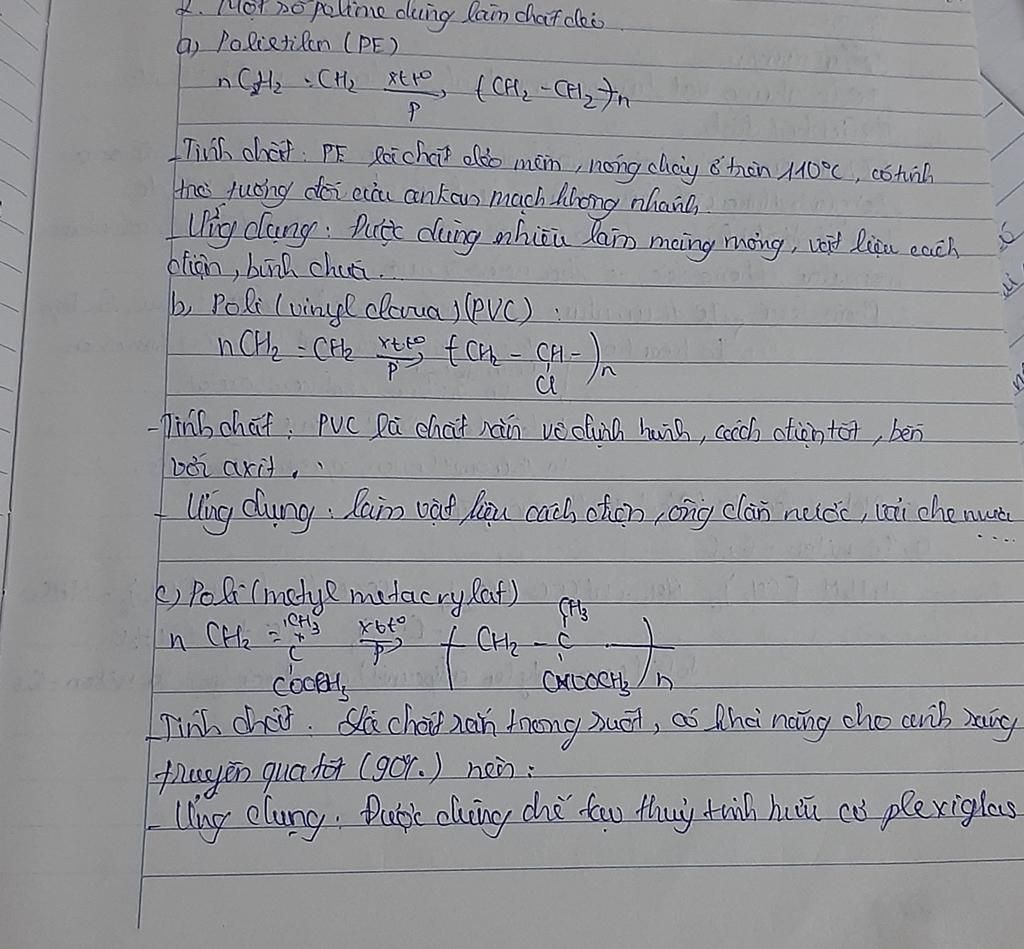 2. Một số polime dùng làm chất dẻo
a) Polietilen (PE)
nCH₂ = CH₂ xt t° (CH₂ - CH₂)n
P
- Tính chất: PE là chất dẻo mềm, nóng chảy ở trên 110°C, có tính
trơ tương đối của ankan mạch không nhánh.
Ứng dụng: Được dùng nhiều làm màng mỏng, vật liệu cách
điện, bình chứa...
b) Poli (vinyl clorua) (PVC) :
nCH₂ = CH₂ xt t° (CH₂ - CH - )n
P Cl
- Tính chất: PVC là chất rắn vô định hình, cách điện tốt, bền
với axit.
- Ứng dụng: làm vật liệu cách điện, ống dẫn nước, vải che mưa
....
c) Poli (metyl metacrylat)
CH₃ CH₃
n CH₂ = C xt t° ( CH₂ - C )n
COOCH₃ P COOCH₃
Tính chất: Là chất rắn trong suốt, có khả năng cho ánh sáng
truyền qua tốt (90%) nên:
- Ứng dụng: Được dùng chế tạo thuỷ tinh hữu cơ plexiglas